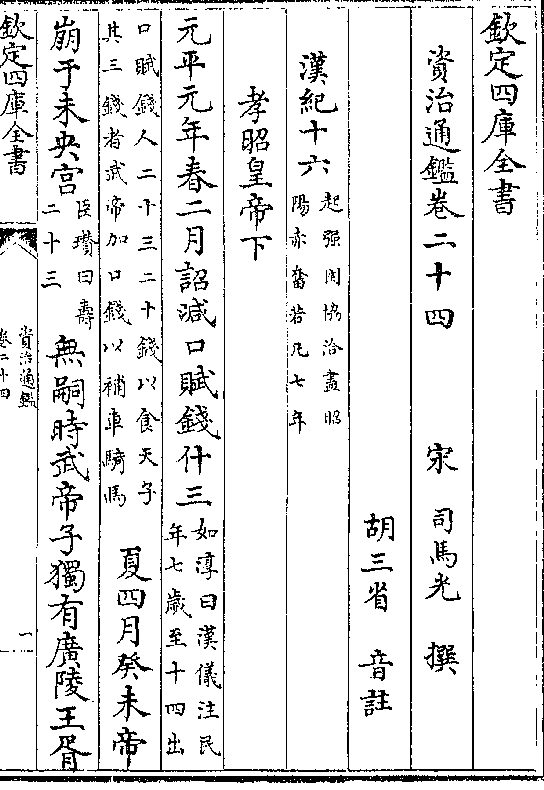 欽定四庫全書
資治通鑑卷二十四
宋 司馬光 撰
胡三省 音註
漢紀十六
起強圉協洽盡昭
陽赤奮若凡七年
孝昭皇帝下
元平元年春二月詔減口賦錢什三
如淳曰漢儀注民
年七歲至十四出
口賦錢人二十三二十錢以食天子
其三錢者武帝加口錢以補車騎馬
夏四月癸未帝
崩于未央宮
臣瓚曰壽
二十三
無嗣時武帝子獨有廣陵王胥
欽定四庫全書
資治通鑑
卷二十四
一